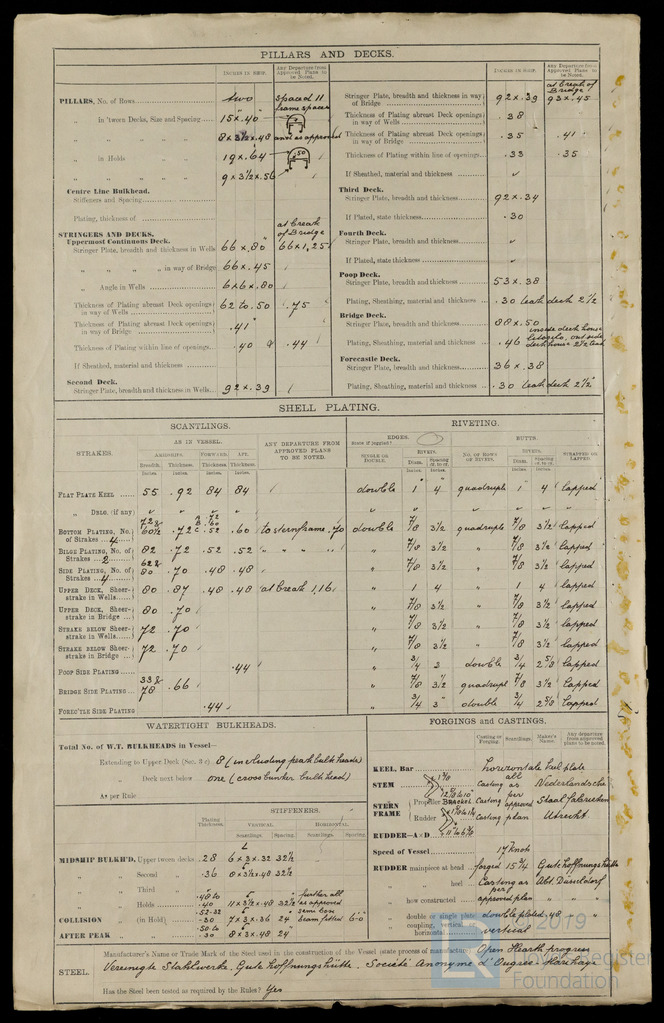 PILLARS AND DECKS.
INCHES IN SHIP.
Any Departure from Approved Plans to be Noted.
PILLARS, No. of Rows two spaced 11 frame spaces
In 'tween Decks, Size and Spacing 15 x .40
" " " 8 x 3½ x .48 as approved
" in Holds 19 x .64 .50
" " " 9 x 3½ x .56
Centre Line Bulkhead.
Stiffeners and Spacing
Plating, thickness of
STRINGERS AND DECKS. at break of Bridge
Uppermost Continuous Deck.
Stringer Plate, breadth and thickness in Wells 66 x .80 66 x 1,25
" " " " in way of Bridge 66 x .45
" Angle in Wells 6 x 6 x .80
Thickness of Plating abreast Deck openings in way of Wells 62 to .50 .75
Thickness of Plating abreast Deck openings in way of Bridge .41
Thickness of Plating within line of openings .40 .44
If Sheathed, material and thickness
Second Deck.
Stringer Plate, breadth and thickness in Wells 92 x .39
INCHES IN SHIP.
Any Departure from Approved Plans to be Noted.
at break of Bridge
Stringer Plate, breadth and thickness in way of Bridge 92 x .39 93 x .45
Thickness of Plating abreast Deck openings in way of Wells .38
Thickness of Plating abreast Deck openings in way of Bridge .35 .41
Thickness of Plating within line of openings .33 .35
If Sheathed, material and thickness
Third Deck.
Stringer Plate, breadth and thickness 92 x .34
If Plated, state thickness .30
Fourth Deck.
Stringer Plate, breadth and thickness
If Plated, state thickness
Poop Deck.
Stringer Plate, breadth and thickness 53 x .38
Plating, Sheathing, material and thickness .30 teak deck 2½
Bridge Deck.
Stringer Plate, breadth and thickness 88 x .50
Plating, Sheathing, material and thickness .46 inside deck house outside deck house 2½ teak
Forecastle Deck.
Stringer Plate, breadth and thickness 36 x .38
Plating, Sheathing, material and thickness .30 teak deck 2½"
SHELL PLATING.
SCANTLINGS.
RIVETING.
STRAKES.
AS IN VESSEL.
AMIDSHIPS. FORWARD. AFT.
Breadth. Thickness. Thickness. Thickness.
Inches. Inches. Inches. Inches.
ANY DEPARTURE FROM APPROVED PLANS TO BE NOTED.
EDGES.
State if joggled?
SINGLE OR DOUBLE.
RIVETS.
Diam. Spacing cr. to cr.
BUTTS.
NO. OF ROWS OF RIVETS.
RIVETS.
Diam. Spacing cr. to cr.
STRAPPED OR LAPPED.
FLAT PLATE KEEL 55 .92 84 84 double 1" 4" quadruple 1" 4 lapped
" DBLG. (if any)
BOTTOM PLATING, No. of Strakes 4 72 & 60½ .72 A .72 B .60 C .52 .60 to sternframe .70 double 7/8 3½ quadruple 7/8 3½ lapped
BILGE PLATING, No. of Strakes 2 82 .72 .52 .52 " " " " " 7/8 3½ " 7/8 3½ lapped
SIDE PLATING, No. of Strakes 4 62 & 80 .70 .48 .48 " 7/8 3½ " 7/8 3½ lapped
UPPER DECK, Sheer-strake in Wells 80 .87 .48 .48 at break 1,16 " 1 4 " 1 4 lapped
UPPER DECK, Sheer-strake in Bridge 80 .70 " 7/8 3½ " 7/8 3½ lapped
STRAKE BELOW Sheer-strake in Wells 72 .70 " 7/8 3½ " 7/8 3½ lapped
STRAKE BELOW Sheer-strake in Bridge 72 .70 " 7/8 3½ " 7/8 3½ lapped
POOP SIDE PLATING .44 " 3/4 3 double 3/4 2 5/8 lapped
BRIDGE SIDE PLATING 33 & 78 .66 " 7/8 3½ quadrupl 7/8 3½ lapped
FORECTLE SIDE PLATING .44 " 3/4 3" double 3/4 2 5/8 lapped
WATERTIGHT BULKHEADS.
Total No. of W.T. BULKHEADS in Vessel—
Extending to Upper Deck (Sec. 3 c) 8 (including peak bulkheads)
" Deck next below one (crossbunker bulkhead)
As per Rule
Plating Thickness.
STIFFENERS.
VERTICAL. HORIZONTAL.
Scantlings. Spacing. Scantlings. Spacing.
MIDSHIP BULKH'D, Upper tween decks .28 6 x 3 x .32 32½
" " Second " .36 8 x 3½ x .48 32½
" " Third "
" " Holds .48 to .40 11 x 3½ x .48 32½ further all as approved
COLLISION " (in Hold) .52-.32 .30 7 x 3 x .36 24" 6-0
AFTER PEAK " " .50 to .30 8 x 3 x .48 24"
FORGINGS and CASTINGS.
Casting or Forging. Scantlings. Maker's Name. Any departure from approved plans to be noted.
KEEL, Bar horizontale keilplate
STEM Casting all as Nederlandsche
STERN FRAME Propeller Bracket Casting per approved Staal fabrieken
Rudder Casting plan Utrecht.
RUDDER—A x D
Speed of Vessel 17 Knots
RUDDER mainpiece at head forged 15¾ Gutehoffnungshütte
" " heel Casting as per Abt. Düsseldorf
" how constructed approved plan
" double or single plate double plated .48
" coupling, vertical or horizontal vertical
STEEL. Manufacturer's Name or Trade Mark of the Steel used in the construction of the Vessel (state process of manufacture) Open Hearth progress
Vereinigte Stahlwerke, Gutehoffnungshütte, Société Anonyme d'Ougrée-Marihaye
Has the Steel been tested as required by the Rules? Yes
© 2019
Lloyd's Register
Foundation